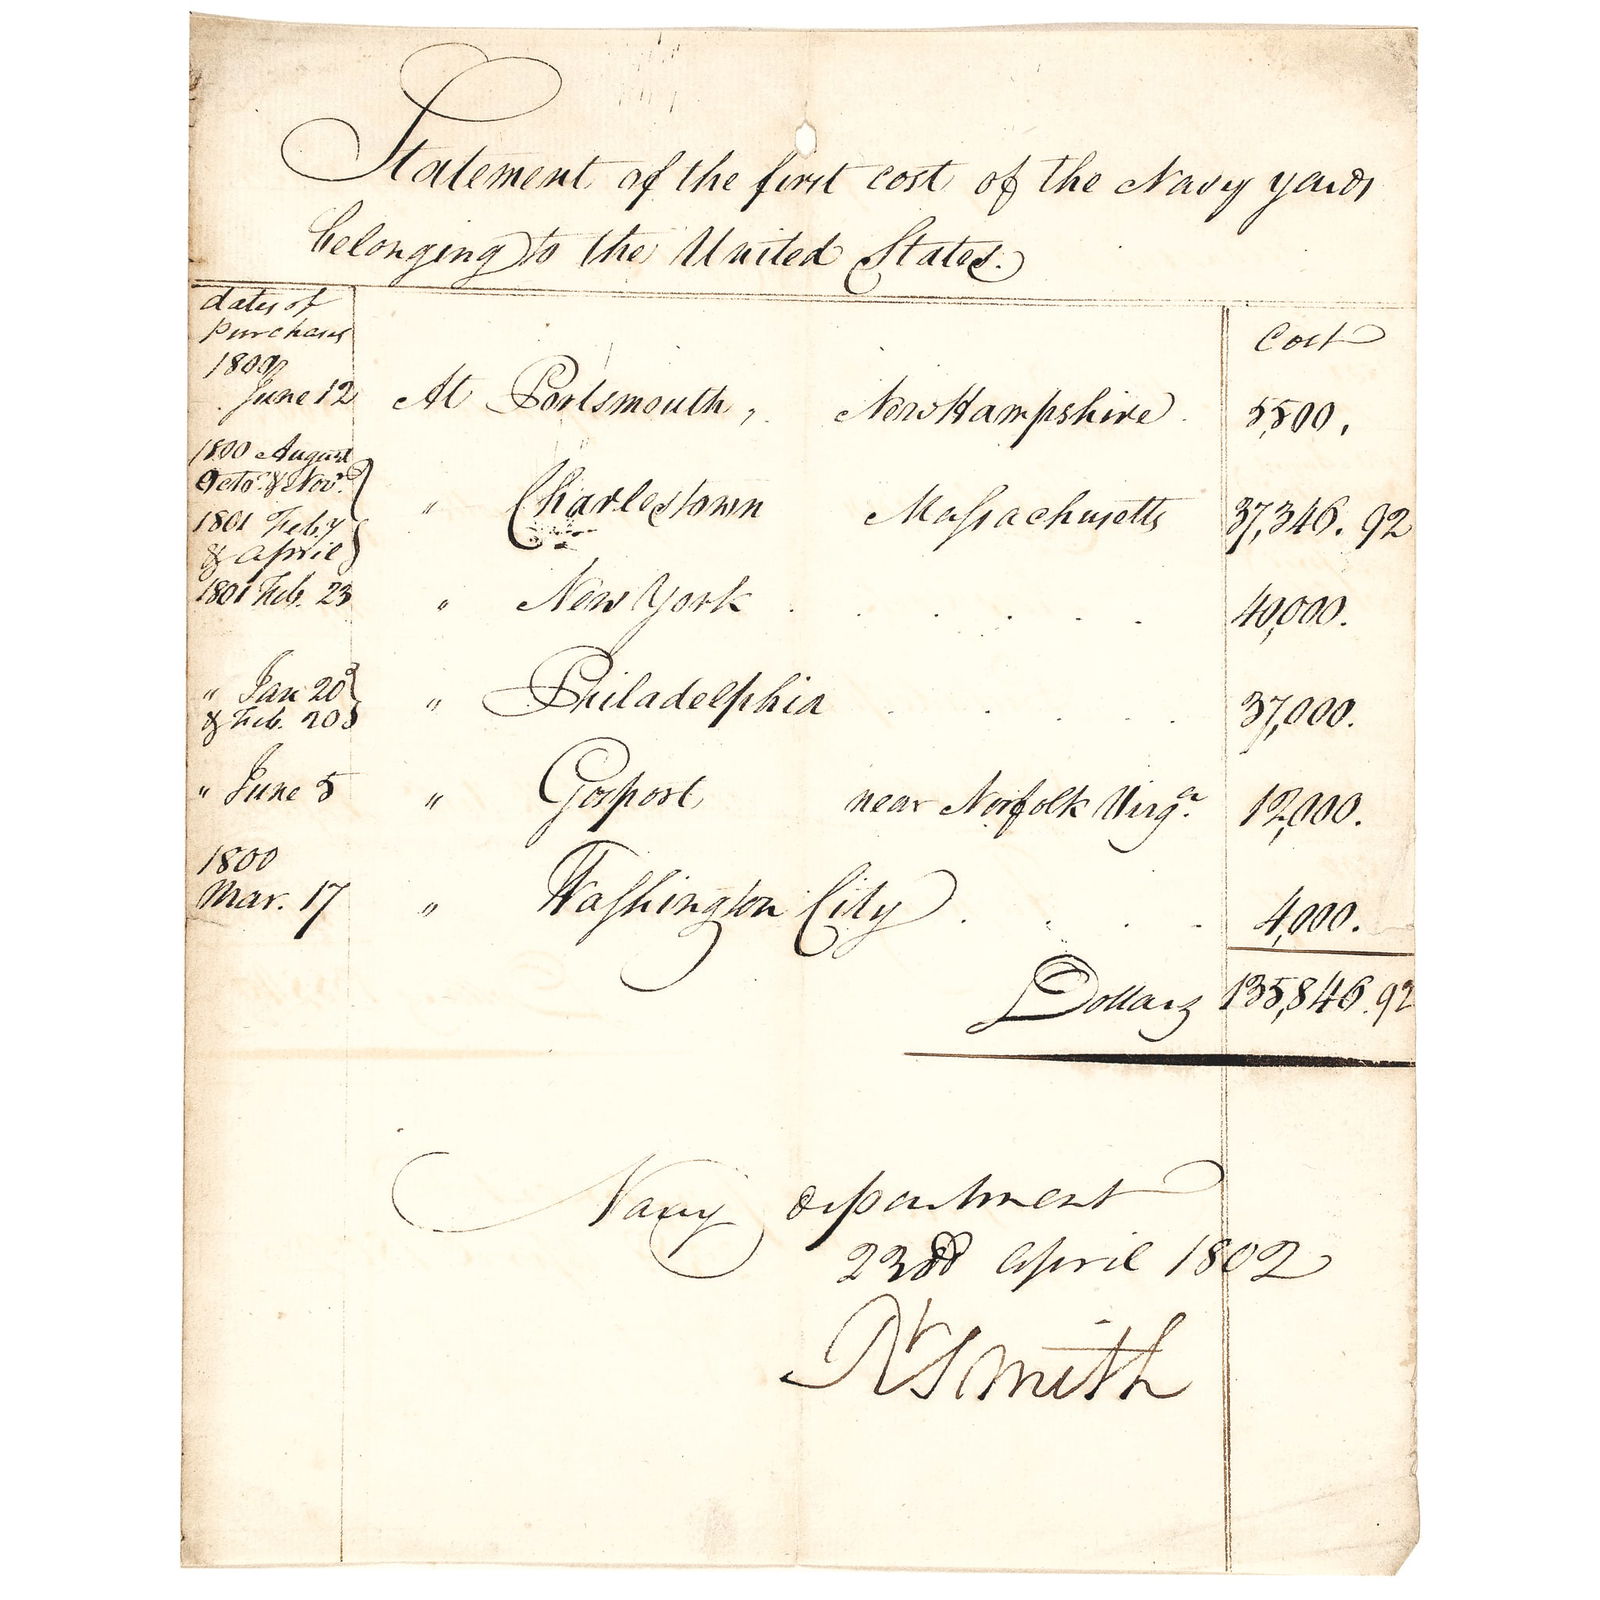 Statement of the first cost of the Navy yards
belonging to the United States.
dates of
purchases
Cost
1800
June 12 At Portsmouth, New Hampshire 5,500.
1800 August
Octo. & Nov.
" Charlestown Massachusetts 37,346.92
1801 Feby
& april
1801 Feb. 23 " New York . . . . . 40,000.
" Jan 20
& Feb. 20 " Philadelphia . . . . 37,000.
" June 5 " Gosport, near Norfolk Virga. 12,000.
1800
Mar. 17 " Washington City . . . . 4,000.
Dollars 135,846.92
Navy department
23d april 1802
Rt Smith